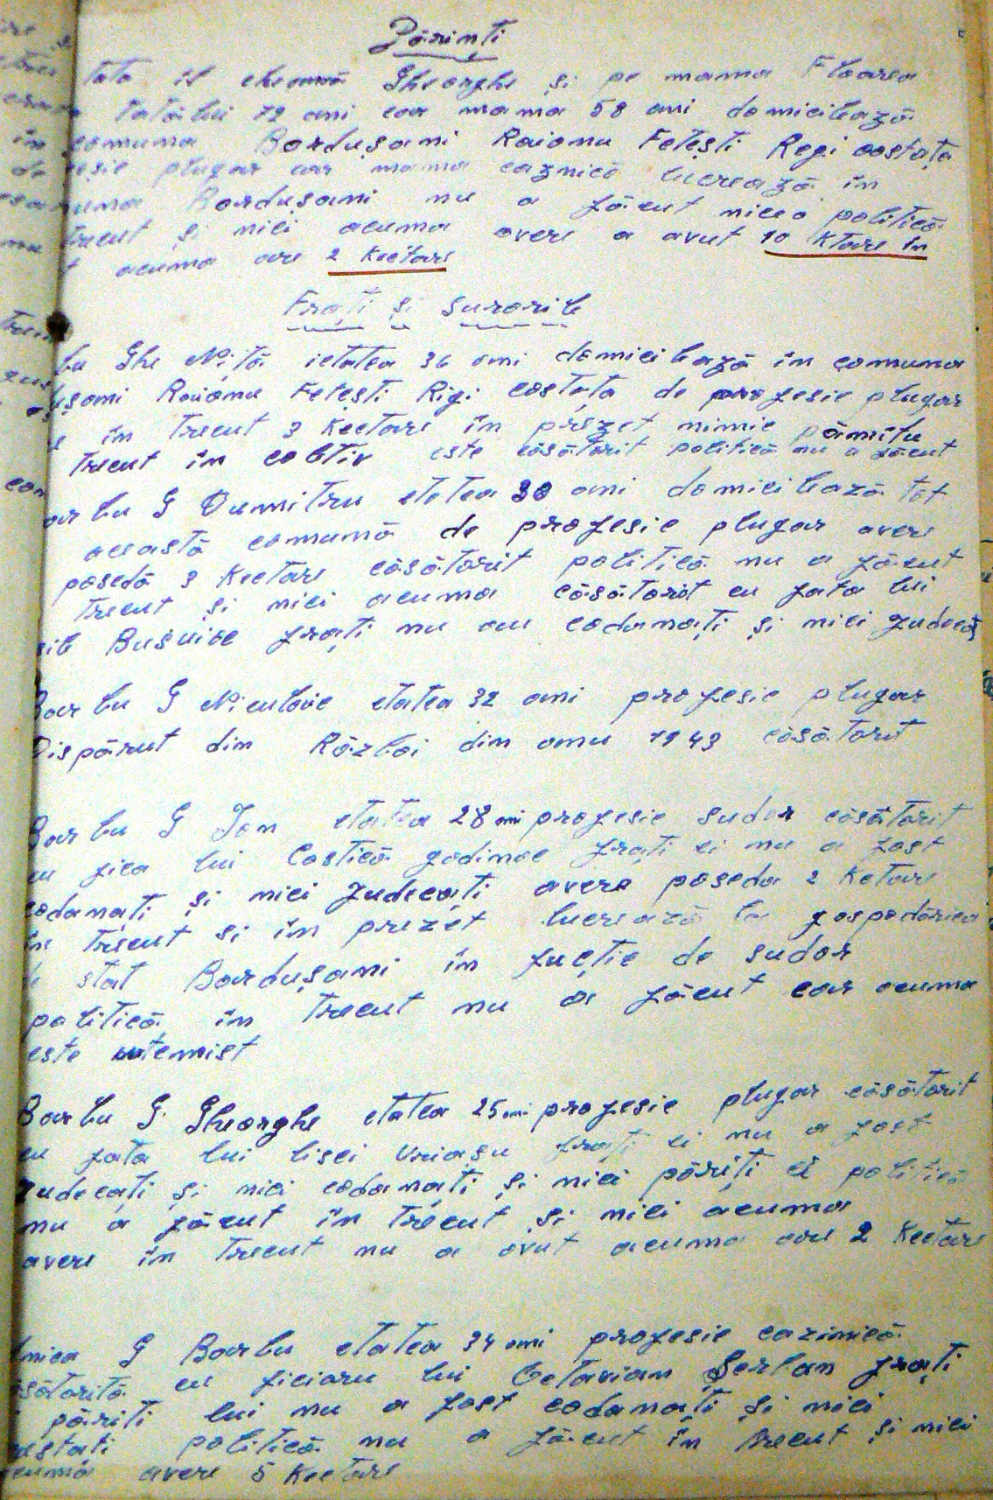 Părinti
tata îl cheamă Gheorghe și pe mama Floarea
tatălui 72 ani ear mama 58 ani domiciliază
în comuna Bordușani Raionu Fetești Regi costața
de profesie plugar ear mama caznică lucrează în
comuna Bordușani nu a făcut nicio politică
trecut și nici acuma avere a avut 10 Ktare în
acuma are 2 Kectare
Frați și surorile
bu Ghe Niță ietatea 36 ani domiciliază în comuna
ușani Raionu Fetești Rigi costața de profesie plugar
în trecut 3 Kectare în prezet nimic pămîtu
trecut în coltiv este căsătorit politică nu a făcut
arbu G Dumitru etatea 30 ani domiciliază tot
această comună de profesie plugar avere
posedă 3 Kectare căsătorit politică nu a făcut
trecut și nici acuma căsătorit cu fata lui
frați nu au codamați și nici judecați
Barbu G Niculaie etatea 32 ani profesie plugar
Dispărut din Război din anu 1943 căsătorit
Barbu G Ion etatea 28 ani profesie sudor căsătorit
cu fica lui Costică godinac frați ei nu a fost
codamați și nici judecați avere poseda 2 Ketare
în trecut si în prezet lucrează la gospodăriea
de stat Bordușani în fucție de sudor
politică în trecut nu a făcut ear acuma
este utemist
Barbu G Gheorghe etatea 25 ani profesie plugar căsătorit
cu fata lui lisei Uriașu frați ei nu a fost
judecați și nici codamați și nici păriți ei politică
nu a făcut în trecut și nici acuma
avere în trecut nu a avut acuma are 2 Kectare
G Barbu etatea 34 ani profesie cazinică
căsătorită cu ficioru lui Octavian Șerban frați
păriti lui nu a fost codamați și nici
politică nu a făcut în trecut și nici
acumă avere 5 Kectare